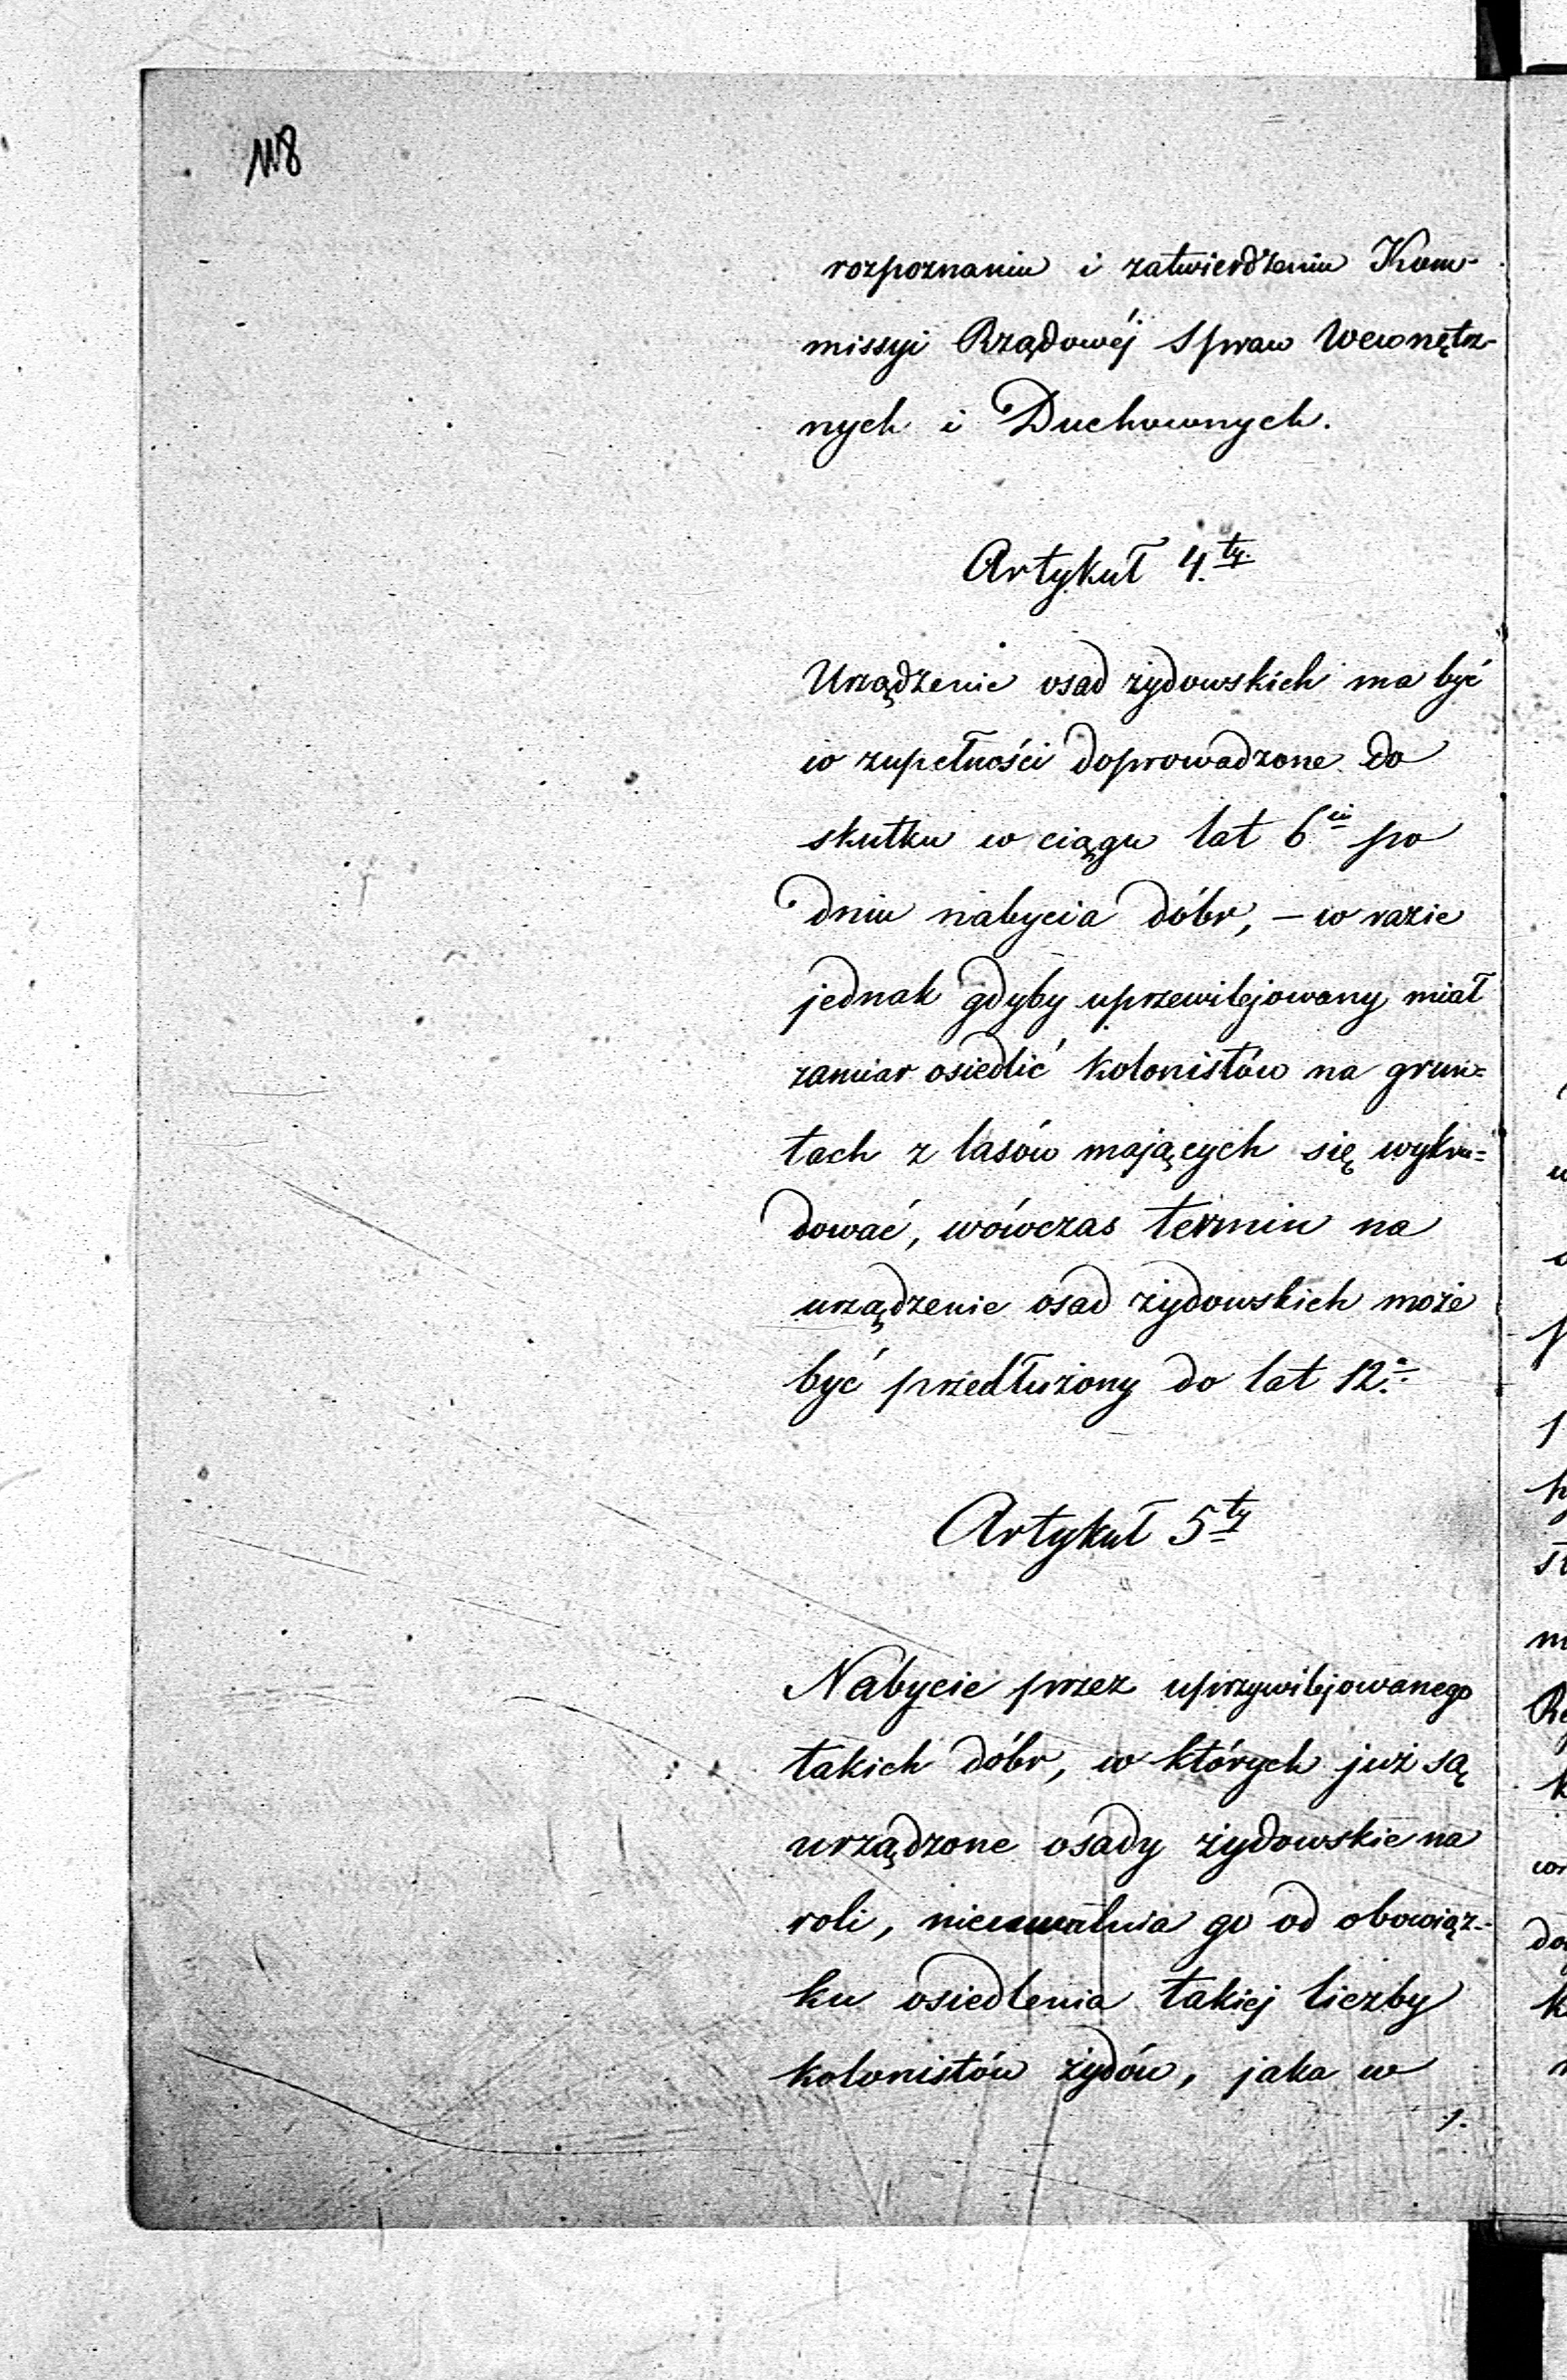 118
rozpoznaniu i zatwierdzeniu Kom-
missyi Rządowéj Spraw Wewnętrz-
nych i Duchownych.
Artykuł 4.ty.
Urządzenie osad żydowskich ma być
w zupełności doprowadzone do
skutku w ciągu lat 6iu po
dniu nabycia dóbr, — w razie
jednak gdyby uprzewilejowany miał
zamiar osiedlić kolonistów na grun=
tach z lasów mających się wykru=
dować, wówczas termin na
urządzenie osad żydowskich może
być przedłużony do lat 12.
Artykuł 5ty
Nabycie przez uprzywilejowanego
takich dóbr, w których już są
urządzone osady żydowskie na
roli, nieuwalnia go od obowiąz-
ku osiedlenia takiej liczby
kolonistów żydów, jaka w